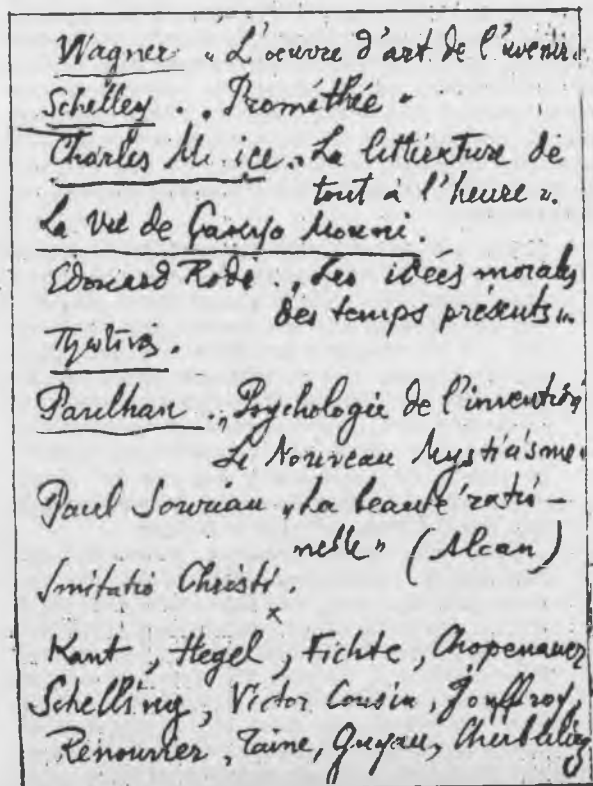 Wagner „L'oeuvre d'art de l'avenir„
Schelley . „Prométhée"
Charles M ice „La littérature de
tout à l'heure".
La vie de Mouni.
Edouard Rode . „Les idées morales
des temps présents".
Paulhan . „Psychologie de l'invention
Le Nouveau Mysticisme"
Paul Souriau „La beauté ratio-
nelle" (Alcan)
Imitatio Christi.
x
Kant, Hegel, Fichte, Chopenauer
Schelling, Victor Cousin, Jouffroy,
Renouvier, Taine, Guyau, Cherbuliez